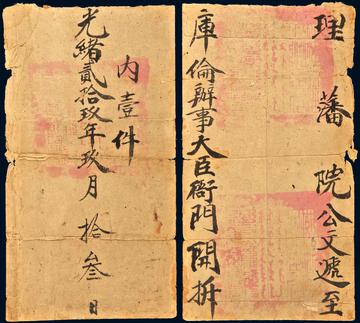 理藩院公文遞至
庫倫辦事大臣衙門開拆
內壹件
光緒貳拾玖年玖月拾叁日